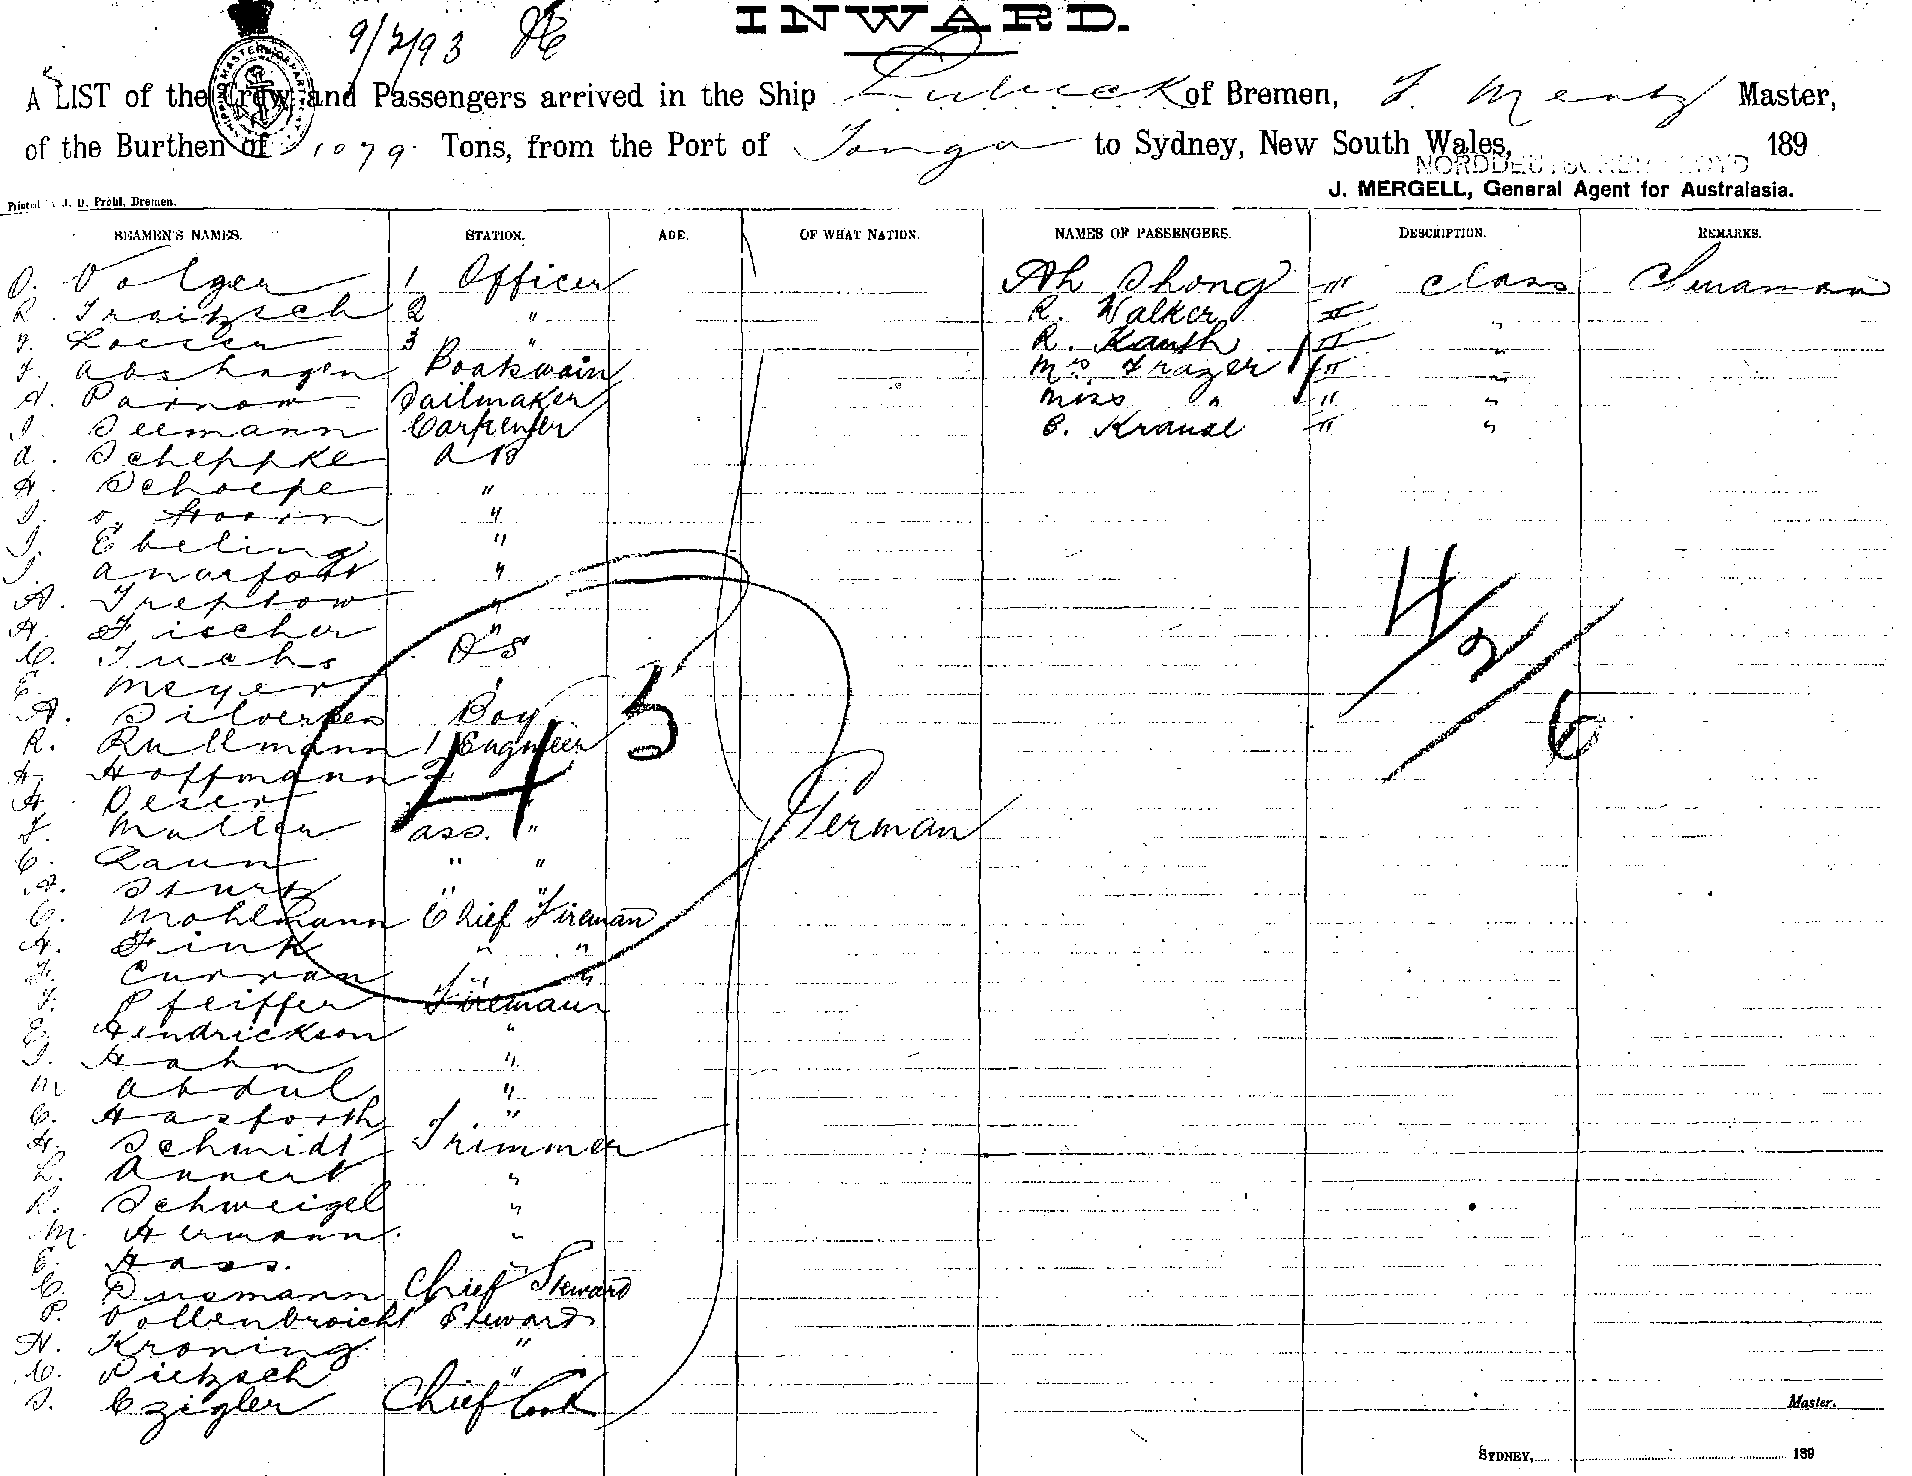 INWARD.
9/2/93
A LIST of the Crew and Passengers arrived in the Ship Lubeck of Bremen, F. Mentz Master,
of the Burthen of 1079 Tons, from the Port of Tonga to Sydney, New South Wales, 189
NORDDEUTSCHER LLOYD
J. MERGELL, General Agent for Australasia.
Printed J. D. Prohl, Bremen.
SEAMEN'S NAMES. STATION. AGE. OF WHAT NATION. NAMES OF PASSENGERS. DESCRIPTION. REMARKS.
O. Volger 1 Officer Ah Shong II class
R. Troitzsch 2 " R. Walker II "
Loesen 3 " R. Kauth II "
F. Abshagen Boatswain Mrs Frazer II "
A. Parnow Sailmaker Miss " II "
J. Seemann Carpenter C. Krause II "
A. Scheppke AB
H. Schoepe "
J. v. Hoorn "
J. Ebeling "
J. "
A. Treptow "
H. Fischer "
C. Fuchs OS
E. Meyer "
A. Silversen Boy
R. Rullmann 1 Engineer
H. Hoffmann 2
H. Oeser "
F. Muller ass. "
C. Laun " "
A. Sturtz " "
C. Mohlmann Chief Fireman
H. Fink " "
F. Curran " "
F. Pfeiffer Firemann
E. Hendrickson "
J. Hahn "
M Abdul "
C. Hasforth "
H. Schmidt Trimmer
L. Annert "
R. Schweigel "
M. Hermann "
E. Hass. "
C. Busmann Chief Steward
P. Vollenbroicht Steward
H. Kroning "
C. Pietzsch "
J. Czigler Chief Cook
German
43
4/2/6
Master.
SYDNEY, 189